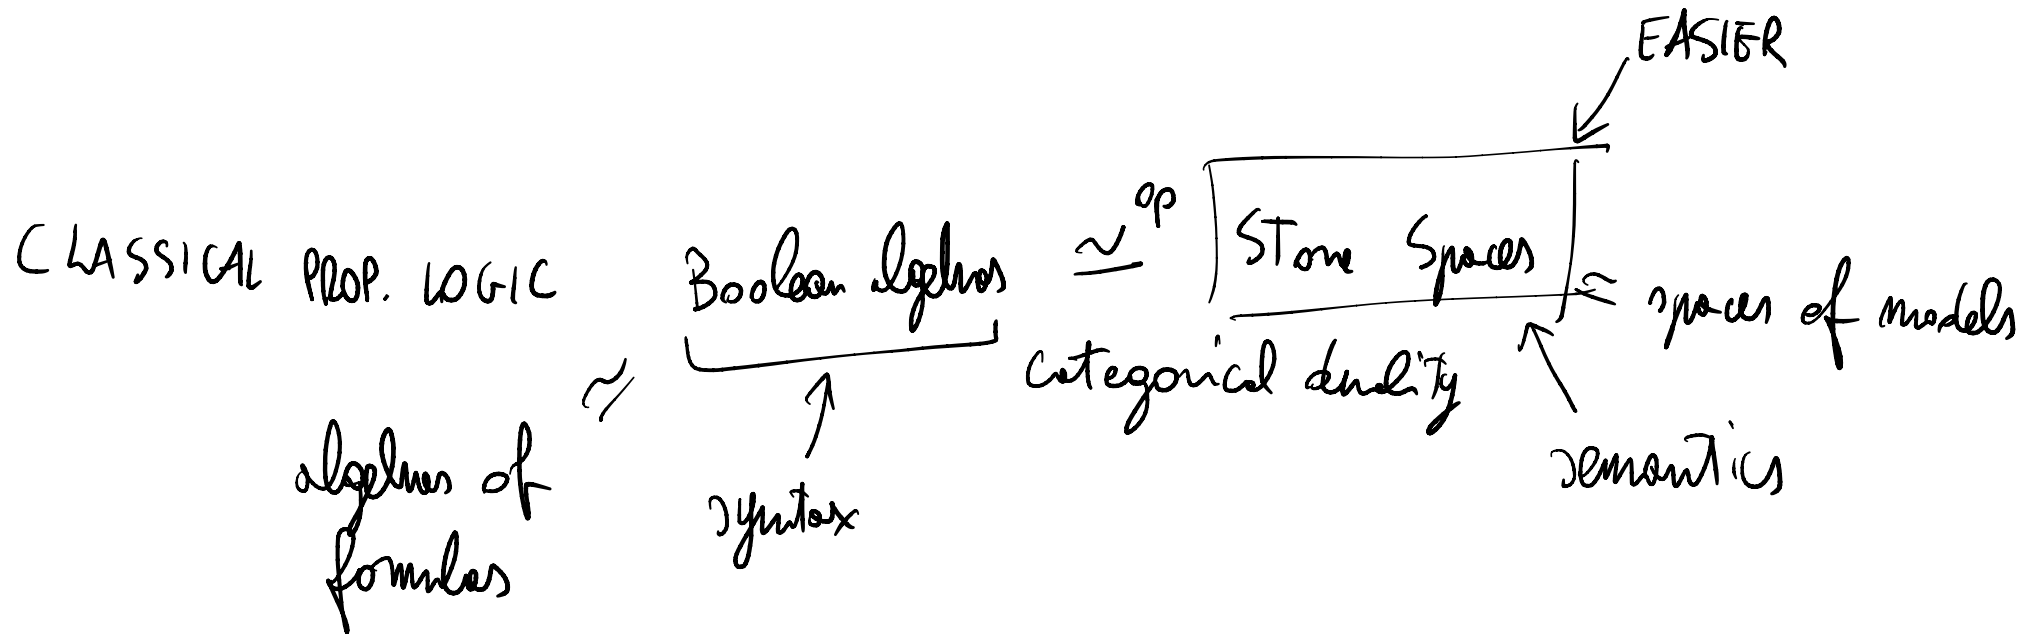 EASIER
CLASSICAL PROP. LOGIC
Boolean algebras ≃ᵒᵖ Stone Spaces ≃ spaces of models
categorical duality
algebras of formulas ≃
syntax
semantics